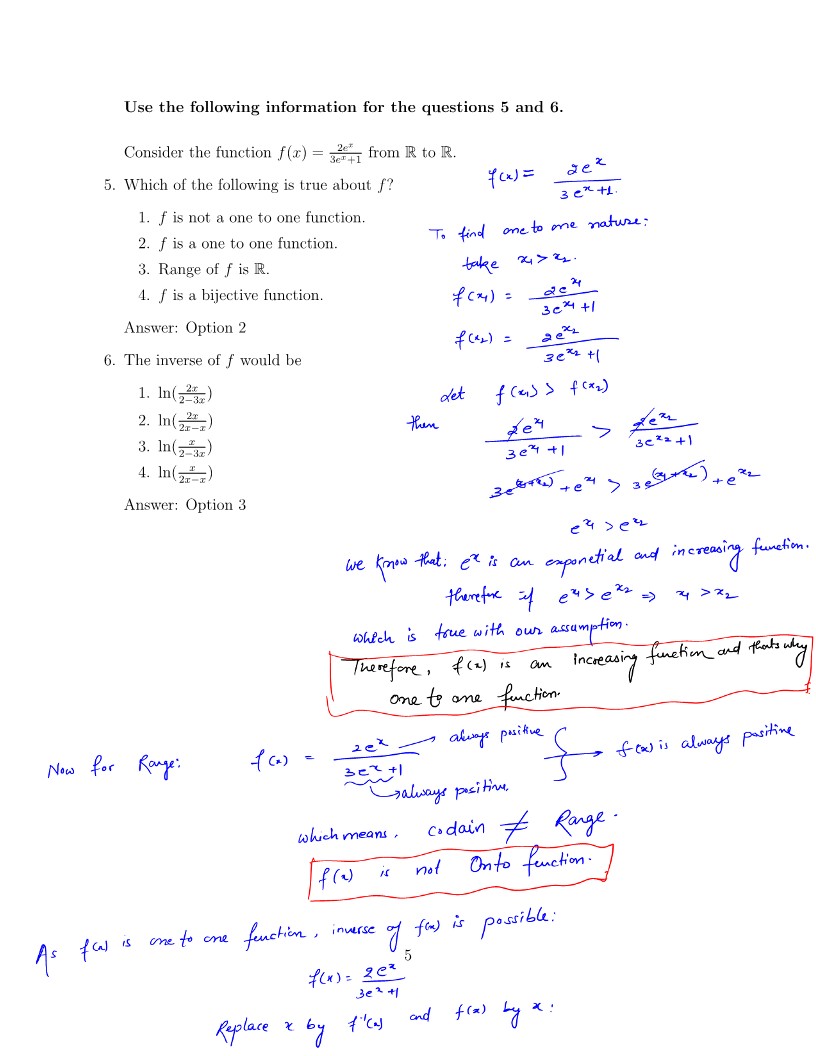 Use the following information for the questions 5 and 6.
Consider the function f(x) = 2e^x/(3e^x+1) from ℝ to ℝ.
5. Which of the following is true about f?
1. f is not a one to one function.
2. f is a one to one function.
3. Range of f is ℝ.
4. f is a bijective function.
Answer: Option 2
6. The inverse of f would be
1. ln(2x/(2−3x))
2. ln(2x/(2x−x))
3. ln(x/(2−3x))
4. ln(x/(2x−x))
Answer: Option 3
f(x) = 2e^x/(3e^x+1.)
To find one to one nature:
take x₁ > x₂.
f(x₁) = 2e^x₁/(3e^x₁ +1)
f(x₂) = 2e^x₂/(3e^x₂ +1)
Let f(x₁) > f(x₂)
then 2e^x₁/(3e^x₁ +1) > 2e^x₂/(3e^x₂ +1)
3e^(x₁+x₂) + e^x₁ > 3e^(x₁+x₂) + e^x₂
e^x₁ > e^x₂
we know that: e^x is an exponetial and increasing function.
therefore if e^x₁ > e^x₂ ⇒ x₁ > x₂
which is true with our assumption.
Therefore, f(x) is an increasing function and thats why
one to one function.
Now for Range: f(x) = 2e^x/(3e^x +1) → always positive → f(x) is always positive
→ always positive.
which means, codain ≠ Range.
f(x) is not Onto function.
As f(x) is one to one function, inverse of f(x) is possible:
5
f(x) = 2e^x/(3e^x +1)
Replace x by f⁻¹(x) and f(x) by x: